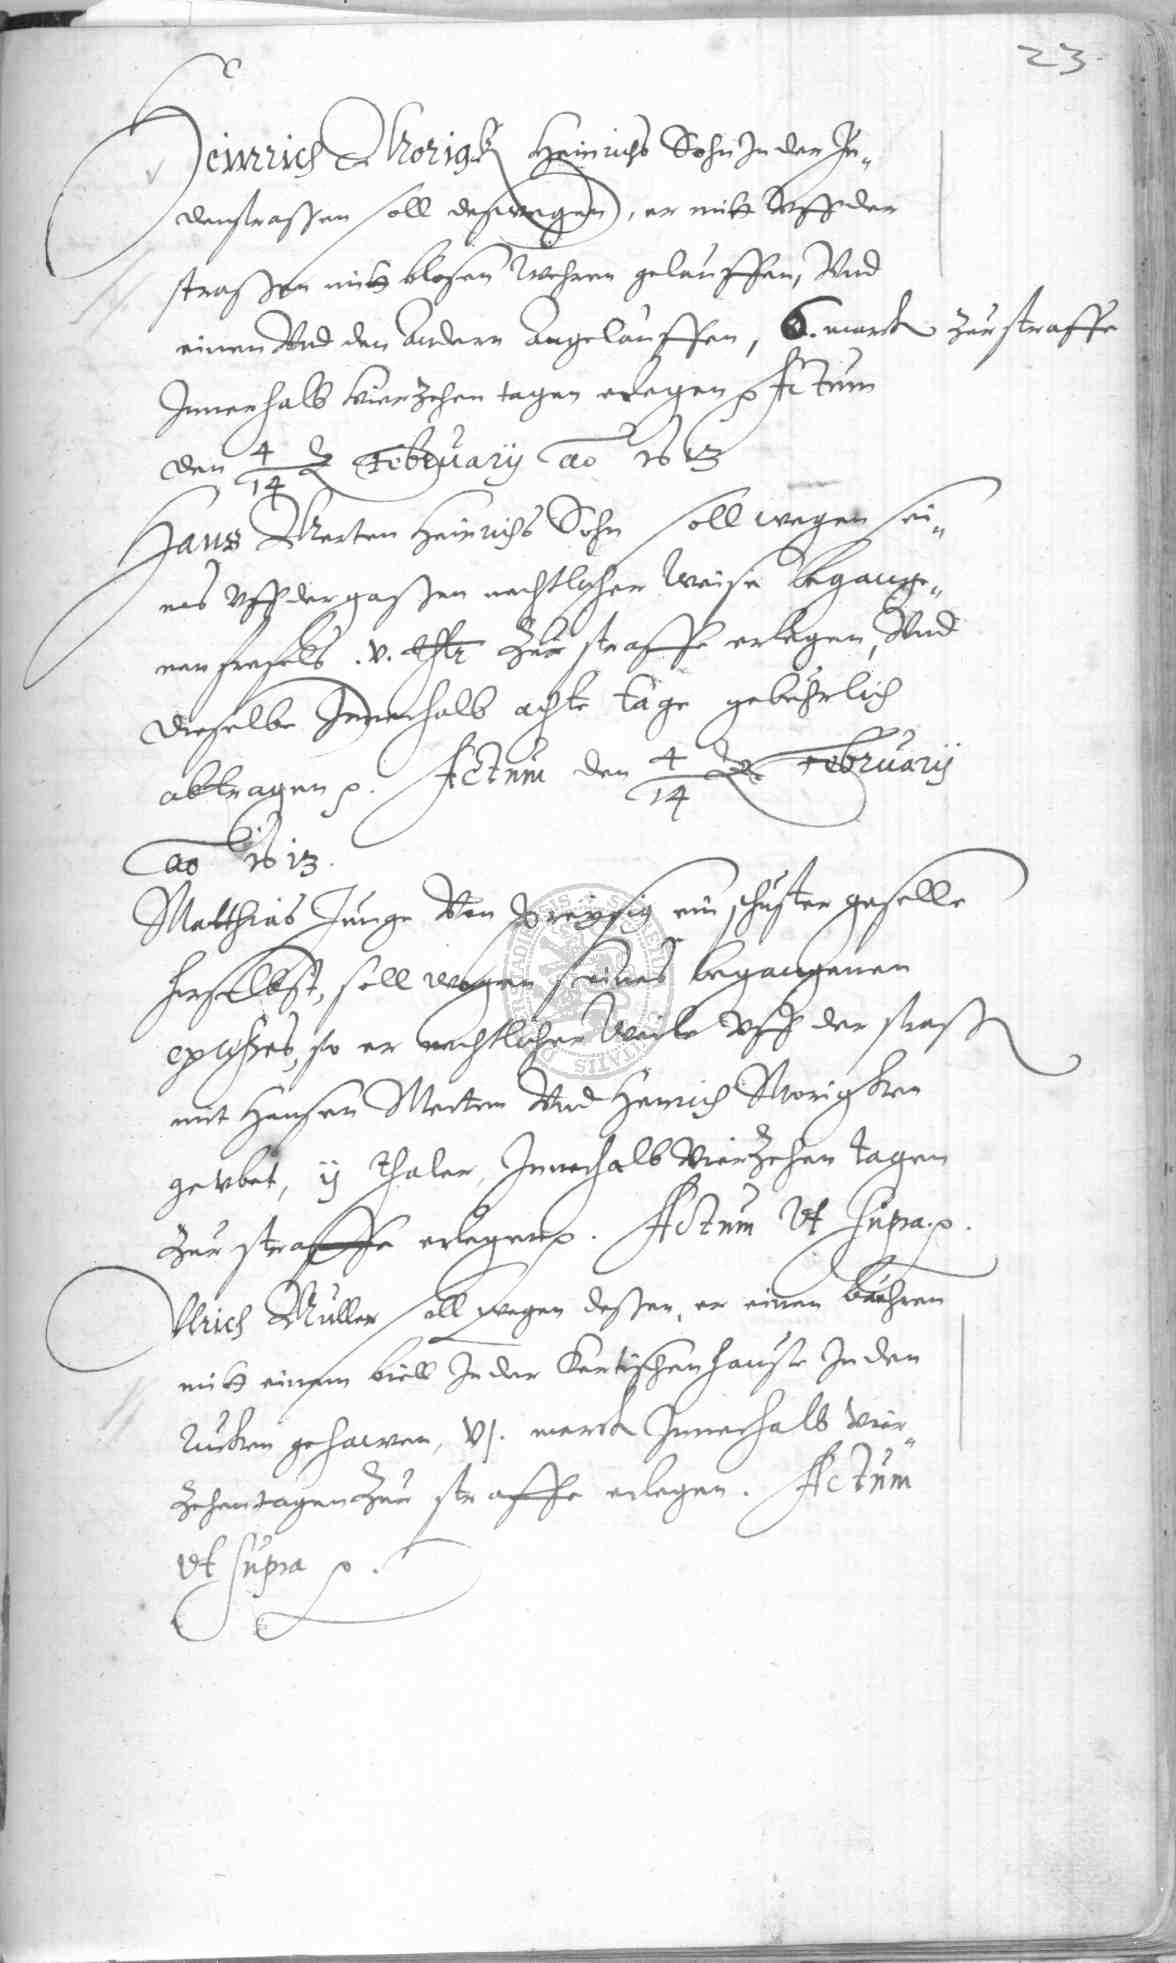 23.
Heinrich Morigk Heinrichs Sohn In der Ju„
denstrassen soll deswegen, er mitt Vff der
strassen mitt blosen Wehren gelauffen, Vnd
einen Vnd den Andern Angelauffen, 6. marck zur straffe
Innerhalb vierzehen tagen erlegen p Actum
den 4/14 February ao 1613
Hans Merten Heinrichs Sohn soll wegen sei„
nes Vff der gassen nechtlicher Weise begange„
nen frefels .v. thlr zur straffe erlegen, Vnd
dieselbe Innerhalb achte tage gebührlich
abtragen p. Actum den 4/14 February
ao 1613.
Matthias Junge Von ein schuster geselle
hirselbst, soll wegen seines begangenen
excesses, so er nechtlicher Weile Vff der strass
mit Hansen Merten Vnd Heinrich Morigken
geubet, ij thaler, Innerhalb Vierzehen tagen
zur straffe erlegen p. Actum Vt supra p.
Ulrich Müller soll wegen dessen, er einen
mitt einem beill In der hause In den
rucken gehawen, vj. marck Innerhalb Vier„
zehen tagen zur straffe erlegen. Actum
Vt supra p.